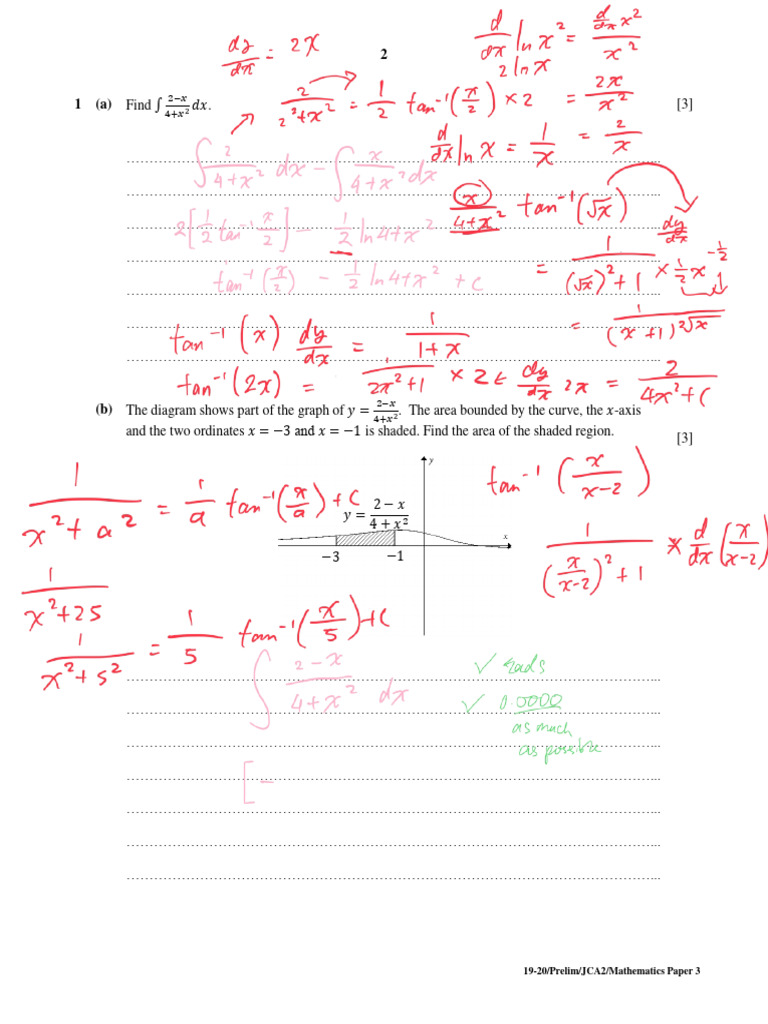 dy/dx = 2x
d/dx ln x² = (d/dx x²)/x²
2 ln x
2
1 (a) Find ∫ (2−x)/(4+x²) dx. [3]
2/(2²+x²) = 1/2 tan⁻¹(x/2) × 2
= 2x/x²
d/dx ln x = 1/x
= 2/x
∫ 2/(4+x²) dx − ∫ x/(4+x²) dx
x/(4+x²)
tan⁻¹(√x)
dy/dx
2[1/2 tan⁻¹ x/2] − 1/2 ln 4+x²
= 1/((√x)²+1) × 1/2 x^(−1/2)
tan⁻¹(x/2) − 1/2 ln 4+x² + c
= 1/((x+1)2√x)
tan⁻¹(x) dy/dx = 1/(1+x)
tan⁻¹(2x) = 1/(2x²+1) × 2 ← dy/dx 2x = 2/(4x²+c)
(b) The diagram shows part of the graph of y = (2−x)/(4+x²). The area bounded by the curve, the x-axis
and the two ordinates x = −3 and x = −1 is shaded. Find the area of the shaded region.
[3]
y
1/(x²+a²) = 1/a tan⁻¹(x/a) + C
tan⁻¹(x/(x−2))
y = (2−x)/(4+x²)
x
−3 −1
1/((x/(x−2))²+1) × d/dx (x/(x−2))
1/(x²+25)
1/(x²+5²) = 1/5 tan⁻¹(x/5) + C
∫ (2−x)/(4+x²) dx
✓ rads
✓ 0.0000
as much
as possible
[ −
19-20/Prelim/JCA2/Mathematics Paper 3